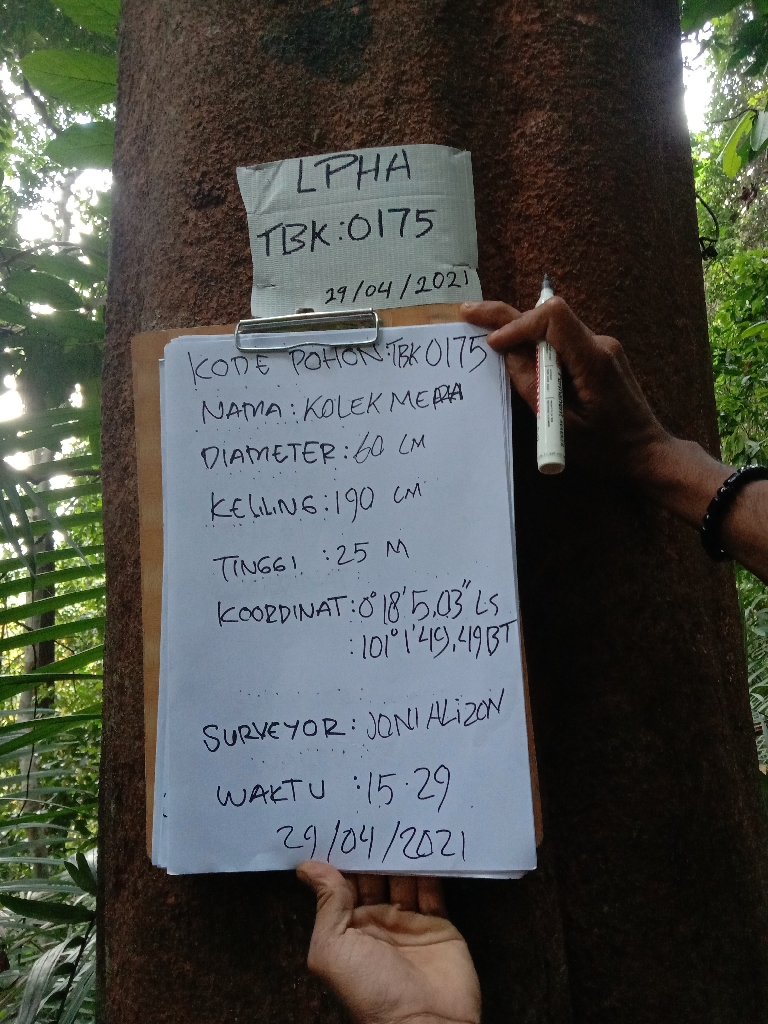 LPHA
TBK:0175
29/04/2021
KODE POHON:TBK0175
NAMA: KOLEK MERAH
DIAMETER:60 CM
KELILING:190 CM
TINGGI :25 M
KOORDINAT:0°18'5,03" LS
:101°1'49,49BT
SURVEYOR: JONI ALIZON
WAKTU :15.29
29/04/2021